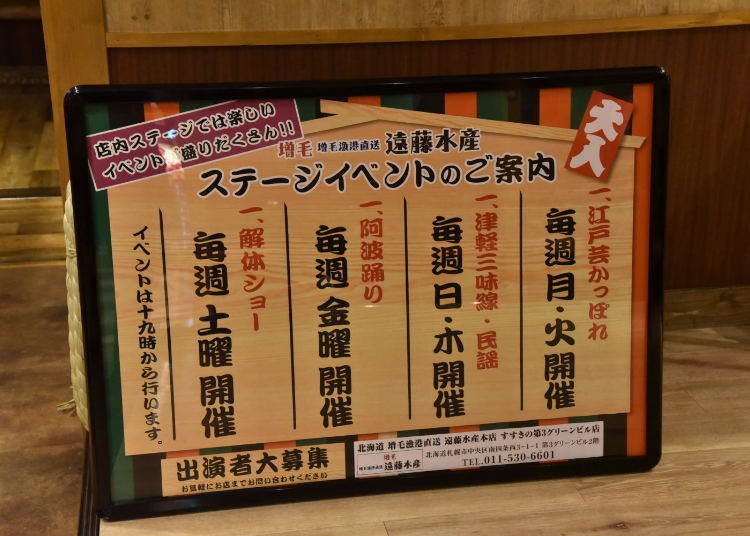 店内ステージでは楽しい
イベント盛りだくさん!!
大入
増毛 増毛漁港直送 遠藤水産
ステージイベントのご案内
一、江戸芸かっぽれ
毎週 月・火 開催
一、津軽三味線・民謡
毎週 日・木 開催
一、阿波踊り
毎週 金曜 開催
一、解体ショー
毎週 土曜 開催
イベントは十九時から行います。
出演者大募集
お気軽にお店までお問い合わせください
北海道 増毛漁港直送 遠藤水産本店 すすきの第3グリーンビル店
増毛
増毛漁港直送 遠藤水産
北海道札幌市中央区南四条西3-1-1 第3グリーンビル2階
TEL.011-530-6601